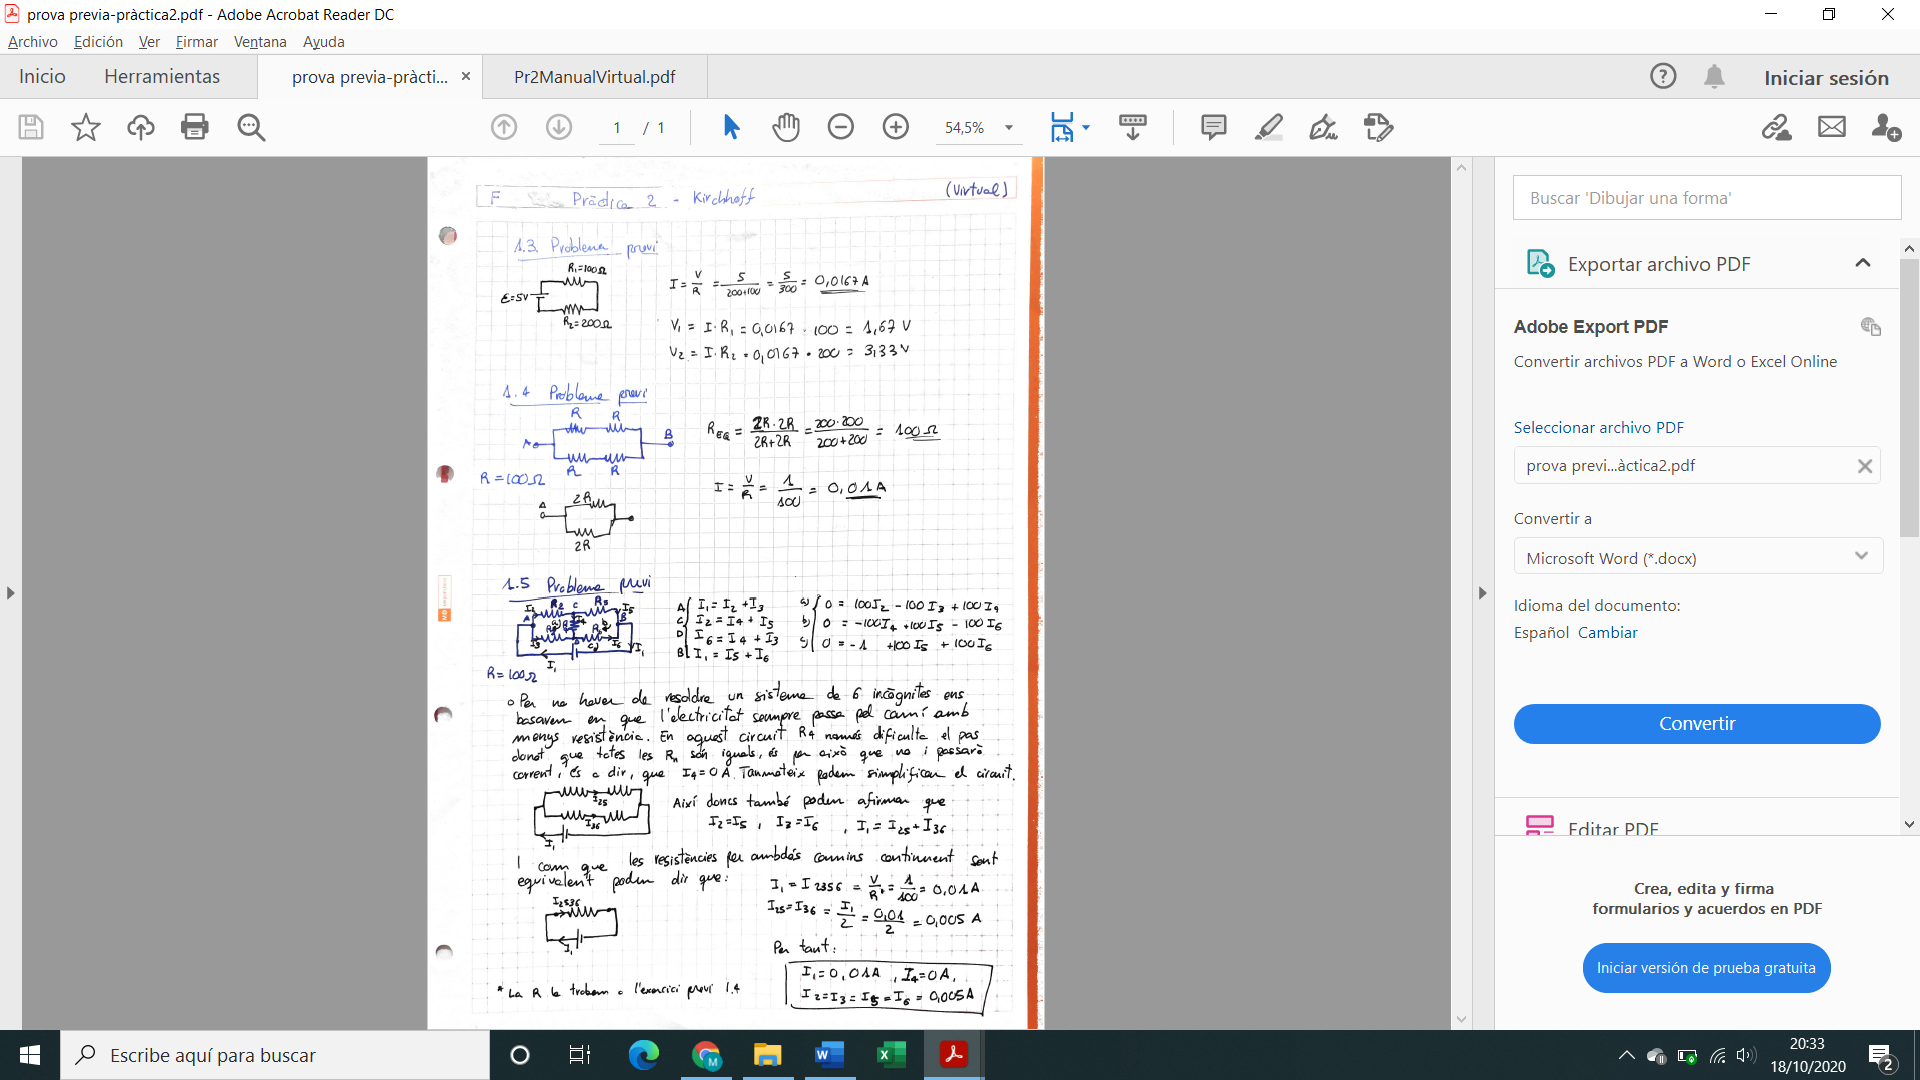 prova previa-pràctica2.pdf - Adobe Acrobat Reader DC
Archivo Edición Ver Firmar Ventana Ayuda
Inicio Herramientas prova previa-pràcti... Pr2ManualVirtual.pdf Iniciar sesión
1 / 1 54,5%
F Pràctica 2 - Kirchhoff (Virtual)
1.3. Problema previ
R₁=100Ω
ε=5V
R₂=200Ω
I = V/R = 5/200+100 = 5/300 = 0,0167 A
V₁ = I·R₁ = 0,0167 · 100 = 1,67 V
V₂ = I·R₂ = 0,0167 · 200 = 3,33 V
1.4 Problema previ
R R
A B
R R
R = 100Ω
R_EQ = 2R·2R/2R+2R = 200·200/200+200 = 100Ω
I = V/R = 1/100 = 0,01A
A 2R
2R
1.5 Problema previ
R=100Ω
A { I₁ = I₂ + I₃
C { I₂ = I₄ + I₅
D { I₆ = I₄ + I₃
B { I₁ = I₅ + I₆
a) { 0 = 100I₂ - 100I₃ + 100I₄
b) { 0 = -100I₄ + 100I₅ - 100I₆
c) { 0 = -1 + 100I₅ + 100I₆
o Per no haver de resoldre un sistema de 6 incògnites ens
basarem en que l'electricitat sempre passa pel camí amb
menys resistència. En aquest circuit R4 només dificulta el pas
donat que totes les Rₙ són iguals, és per això que no i passarà
corrent, és a dir, que I₄=0A. Tanmateix podem simplificar el circuit.
I₂₅
I₃₆
I₁
Així doncs també podem afirmar que
I₂=I₅, I₃=I₆, I₁=I₂₅+I₃₆
I com que les resistències per ambdós camins continuent sent
equivalent podem dir que:
I₂₅₃₆
I₁
I₁ = I₂₃₅₆ = V/R* = 1/100 = 0,01A
I₂₅=I₃₆ = I₁/2 = 0,01/2 = 0,005 A
Per tant:
I₁=0,01A, I₄=0A,
I₂=I₃=I₅=I₆=0,005A
* La R la trobem a l'exercici previ 1.4
Buscar 'Dibujar una forma'
Exportar archivo PDF
Adobe Export PDF
Convertir archivos PDF a Word o Excel Online
Seleccionar archivo PDF
prova previ...àctica2.pdf
Convertir a
Microsoft Word (*.docx)
Idioma del documento:
Español Cambiar
Convertir
Editar PDF
Crea, edita y firma
formularios y acuerdos en PDF
Iniciar versión de prueba gratuita
Escribe aquí para buscar
20:33
18/10/2020
2